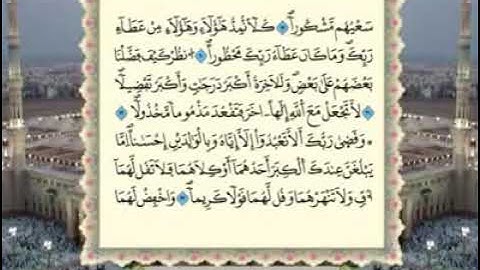 سَعْيُهُم مَّشْكُوراً ۝ كُلّاً نُّمِدُّ هَٰؤُلَاءِ وَهَٰؤُلَاءِ مِنْ عَطَاءِ
رَبِّكَ وَمَا كَانَ عَطَاءُ رَبِّكَ مَحْظُوراً ۝ انظُرْ كَيْفَ فَضَّلْنَا
بَعْضَهُمْ عَلَىٰ بَعْضٍ وَلَلْآخِرَةُ أَكْبَرُ دَرَجَاتٍ وَأَكْبَرُ تَفْضِيلاً ۝
لَّا تَجْعَلْ مَعَ اللَّهِ إِلَٰهاً ءَاخَرَ فَتَقْعُدَ مَذْمُوماً مَّخْذُولاً ۝
وَقَضَىٰ رَبُّكَ أَلَّا تَعْبُدُوا إِلَّا إِيَّاهُ وَبِالْوَالِدَيْنِ إِحْسَاناً إِمَّا
يَبْلُغَنَّ عِندَكَ الْكِبَرَ أَحَدُهُمَا أَوْ كِلَاهُمَا فَلَا تَقُل لَّهُمَا
أُفٍّ وَلَا تَنْهَرْهُمَا وَقُل لَّهُمَا قَوْلاً كَرِيماً ۝ وَاخْفِضْ لَهُمَا